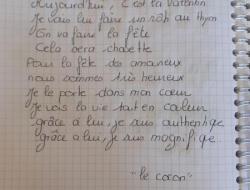 Aujourd'hui, c'est la Valentin
Je vais lui faire un rôti au thym
On va faire la fête
Cela sera chouette
Pour la fête des amoureux
nous sommes très heureux
Je le porte dans mon cœur
Je vois la vie tout en couleur
grâce à lui, je suis authentique
grâce à lui, je suis magnifique.
"le cocon"